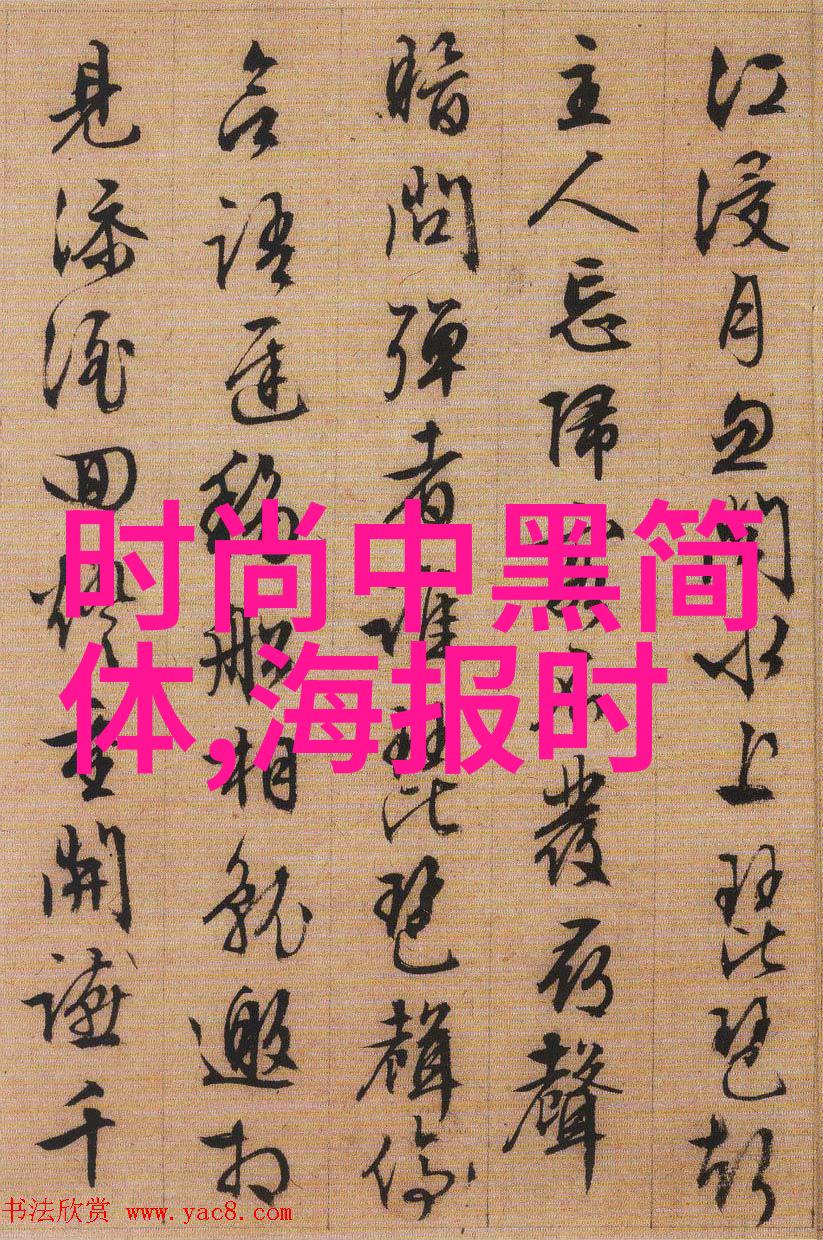 江浸月忽聞水上琵琶聲
主人忘歸客不發尋聲
暗問彈者誰琵琶聲停
欲語遲移船相就邀相
見添酒回燈重開讌千
时尚中黑简
体,海报时
书法欣赏 www.yac8.com